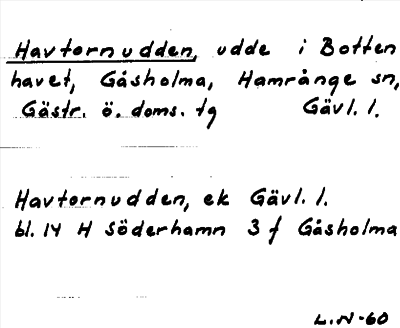 Havtornudden, udde i Botten
havet, Gåsholma, Hamrånge sn,
Gästr. ö. doms. tg Gävl. l.
Havtornudden, ek Gävl. l.
bl. 14 H Söderhamn 3 f Gåsholma
L.N-60